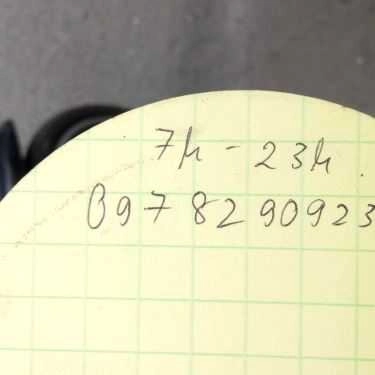 7h - 23h.
0978290923